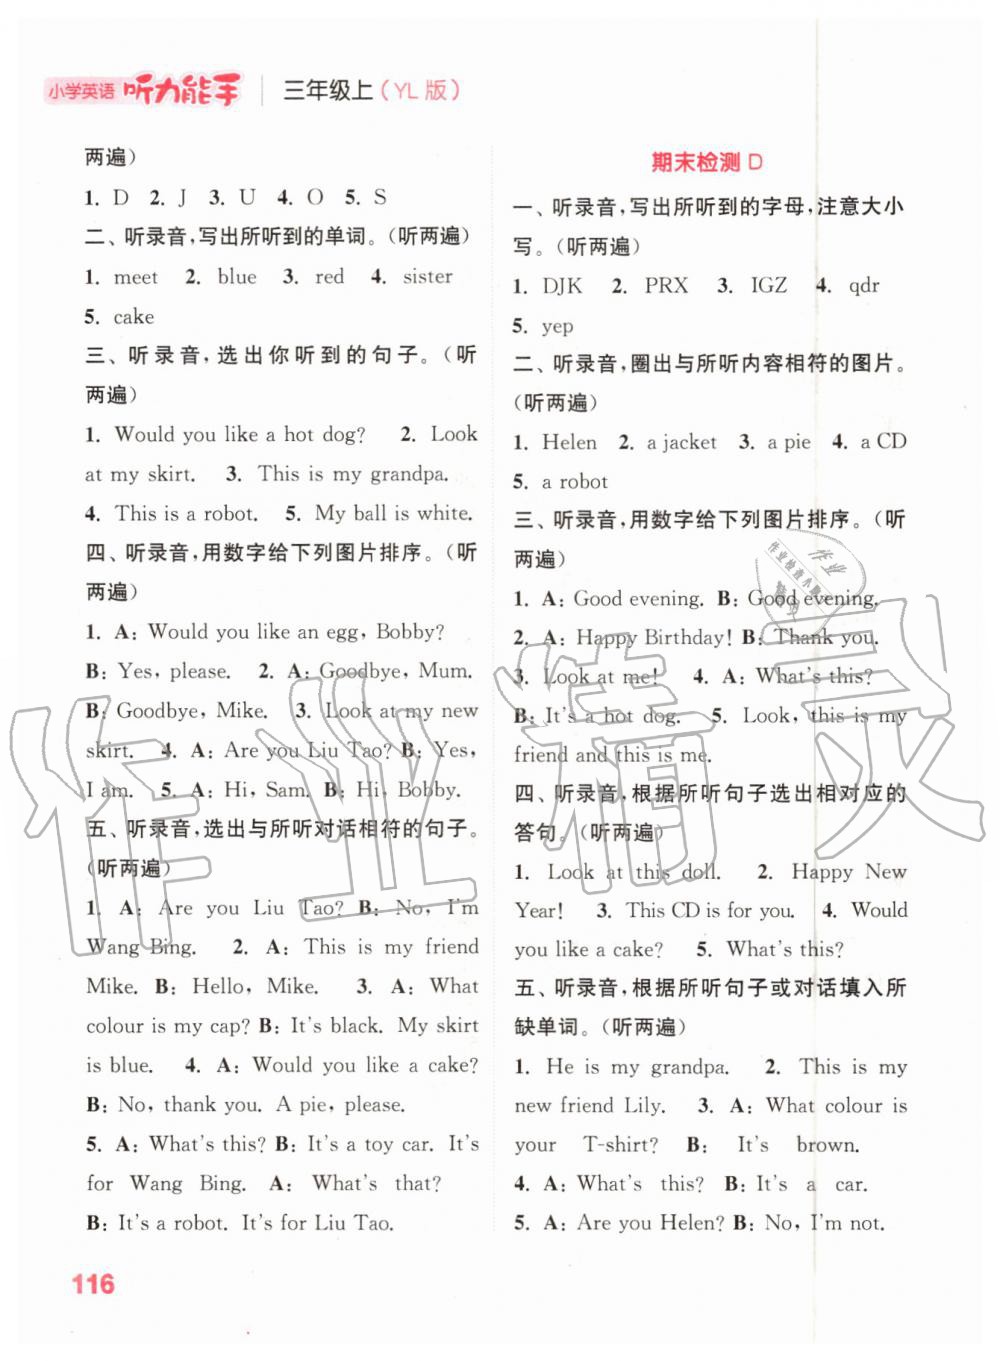 小学英语 听力能手 三年级上（YL 版）
两遍）
1. D 2. J 3. U 4. O 5. S
二、听录音，写出所听到的单词。（听两遍）
1. meet 2. blue 3. red 4. sister
5. cake
三、听录音，选出你听到的句子。（听
两遍）
1. Would you like a hot dog? 2. Look
at my skirt. 3. This is my grandpa.
4. This is a robot. 5. My ball is white.
四、听录音，用数字给下列图片排序。（听
两遍）
1. A: Would you like an egg, Bobby?
B: Yes, please. 2. A: Goodbye, Mum.
B: Goodbye, Mike. 3. Look at my new
skirt. 4. A: Are you Liu Tao? B: Yes,
I am. 5. A: Hi, Sam. B: Hi, Bobby.
五、听录音，选出与所听对话相符的句子。
（听两遍）
1. A: Are you Liu Tao? B: No, I'm
Wang Bing. 2. A: This is my friend
Mike. B: Hello, Mike. 3. A: What
colour is my cap? B: It's black. My skirt
is blue. 4. A: Would you like a cake?
B: No, thank you. A pie, please.
5. A: What's this? B: It's a toy car. It's
for Wang Bing. A: What's that?
B: It's a robot. It's for Liu Tao.
116
期末检测 D
一、听录音，写出所听到的字母，注意大小
写。（听两遍）
1. DJK 2. PRX 3. IGZ 4. qdr
5. yep
二、听录音，圈出与所听内容相符的图片。
（听两遍）
1. Helen 2. a jacket 3. a pie 4. a CD
5. a robot
三、听录音，用数字给下列图片排序。（听
两遍）
1. A: Good evening. B: Good evening.
2. A: Happy Birthday! B: Thank you.
3. Look at me! 4. A: What's this?
B: It's a hot dog. 5. Look, this is my
friend and this is me.
四、听录音，根据所听句子选出相对应的
答句。（听两遍）
1. Look at this doll. 2. Happy New
Year! 3. This CD is for you. 4. Would
you like a cake? 5. What's this?
五、听录音，根据所听句子或对话填入所
缺单词。（听两遍）
1. He is my grandpa. 2. This is my
new friend Lily. 3. A: What colour is
your T-shirt? B: It's brown.
4. A: What's this? B: It's a car.
5. A: Are you Helen? B: No, I'm not.
作业精灵